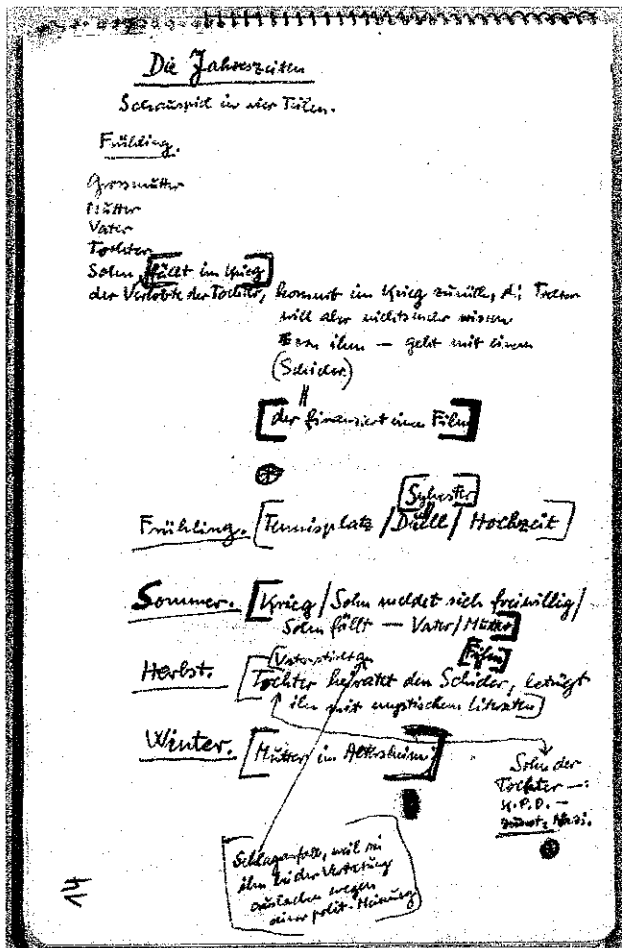 Die Jahreszeiten
Schauspiel in vier Teilen.
Frühling.
Grossmutter
Mutter
Vater
Tochter
Sohn, [fällt im Krieg]
der Verlobte der Tochter, kommt im Krieg zurück, d: Tochter
will aber nichts mehr wissen
von ihm — geht mit einem
(Schieber.)
[der finanziert einen Film]
[Sylvester]
Frühling. [Tennisplatz / Duell / Hochzeit]
Sommer. [Krieg / Sohn meldet sich freiwillig /
Sohn fällt — Vater / Mutter]
[Film]
Herbst. [Tochter heiratet den Schieber, betrügt
ihn mit mystischem Literaten]
Winter. [Mutter im Altersheim.]
Sohn der
Tochter —:
K.P.D. —
zuerst Nazi.
[Schlaganfall, weil sie
ihn bei der
auslachen wegen
einer polit. Meinung]
14